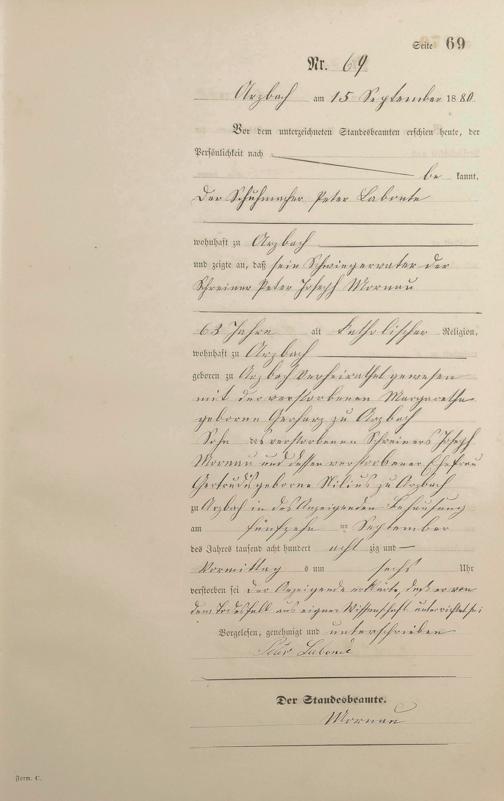 Seite 69
Nr. 69
Arzbach am 15 September 1880.
Vor dem unterzeichneten Standesbeamten erschien heute, der
Persönlichkeit nach
be kannt,
der Schuhmacher Peter Labonte
wohnhaft zu Arzbach
und zeigte an, daß sein Schwiegervater der
Schreiner Peter Joseph Mornau
63 Jahre alt katholischer Religion,
wohnhaft zu Arzbach
geboren zu Arzbach verheirathet gewesen
mit der verstorbenen Margaretha
geborene Gerharz zu Arzbach
Sohn des verstorbenen Schreiners Joseph
Mornau und dessen verstorbener Ehefrau
Gertrudis geborne Nilius zu Arzbach
zu Arzbach in des Anzeigenden Behausung
am fünfzehn ten September
des Jahres tausend acht hundert acht zig und —
Vormittag s um sechs Uhr
verstorben sei der Anzeigende erklärte, daß er von
dem Todesfall aus eigner Wissenschaft unterrichtet sei
Vorgelesen, genehmigt und unterschrieben
Peter Labonte
Der Standesbeamte.
Mornau
Form. C.